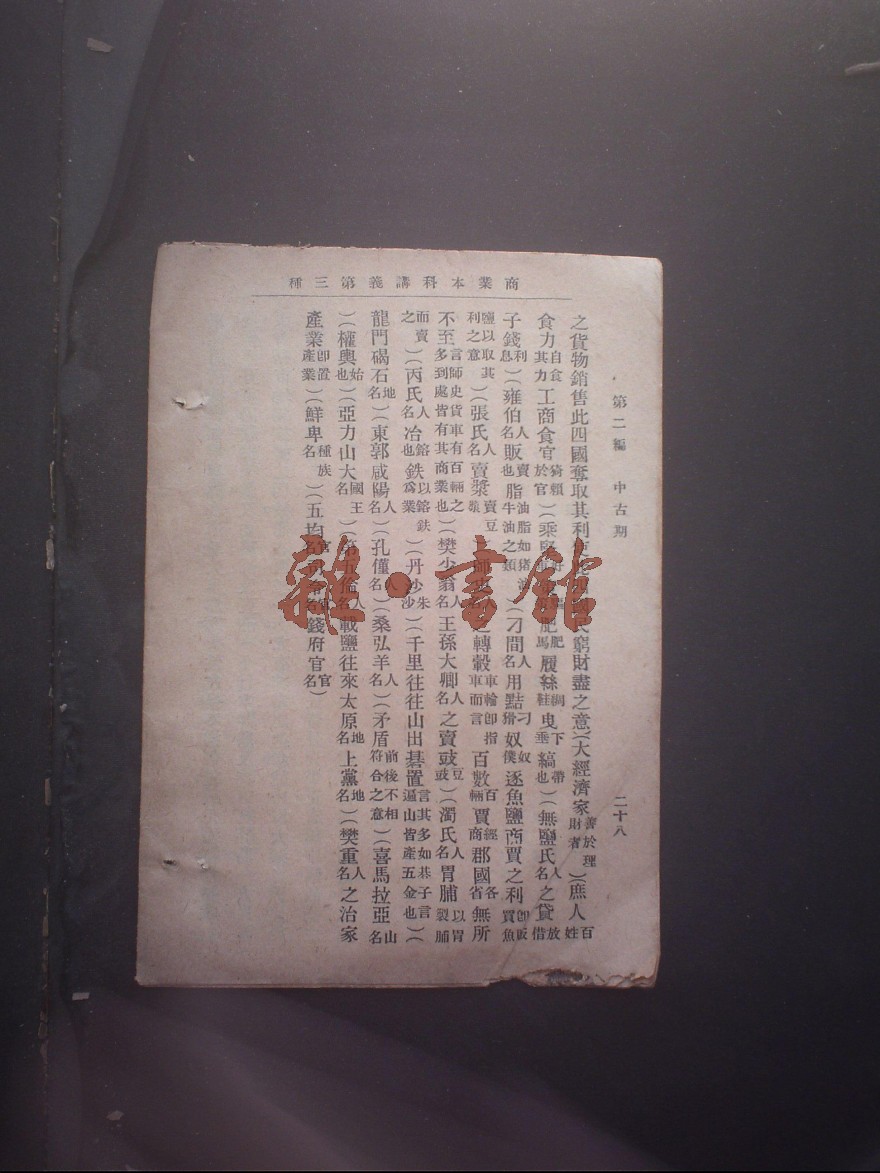 商業本科講義第三種
第二編 中古期 二十八
之貨物銷售此四國奪取其利 窮財盡之意)(大經濟家善於理財者)(庶人百姓
食力自食其力工商食官猗賴於官)(乘堅 肥肥馬履絲綢鞋曳下垂縞帶也)(無鹽氏人名之貸放借
子錢利息)(雍伯人名販賣也脂油脂如猪油牛油之類)(刁間人名用黠刁猾奴奴僕逐魚鹽商賈之利卽販賣魚
鹽以取其利之意)(張氏人名賣漿賣豆漿 轉轂車輪卽指車而言百數百輛賈經商郡國各省無所
不至言師史貨車有百輛之多到處皆有其商業也)(樊少翁人名王孫大卿人名之賣豉豆豉)(濁氏人名胃脯以胃製脯
而賣之)(丙氏人名冶鎔也鉄以鎔鉄爲業)(丹沙朱沙)(千里往往山出碁置言其多如碁子言遍山皆產五金也)(
龍門碣石地名)(東郭咸陽人名)(孔僅人名)(桑弘羊人名)(矛盾前後不相符合之意)(喜馬拉亞山名
)(權輿始也)(亞力山大國王名)(第五倫人名載鹽往來太原地名上黨地名)(樊重人名之治家
產業卽置產業)(鮮卑種族名)(五均官名 錢府官官名)
雜·書館